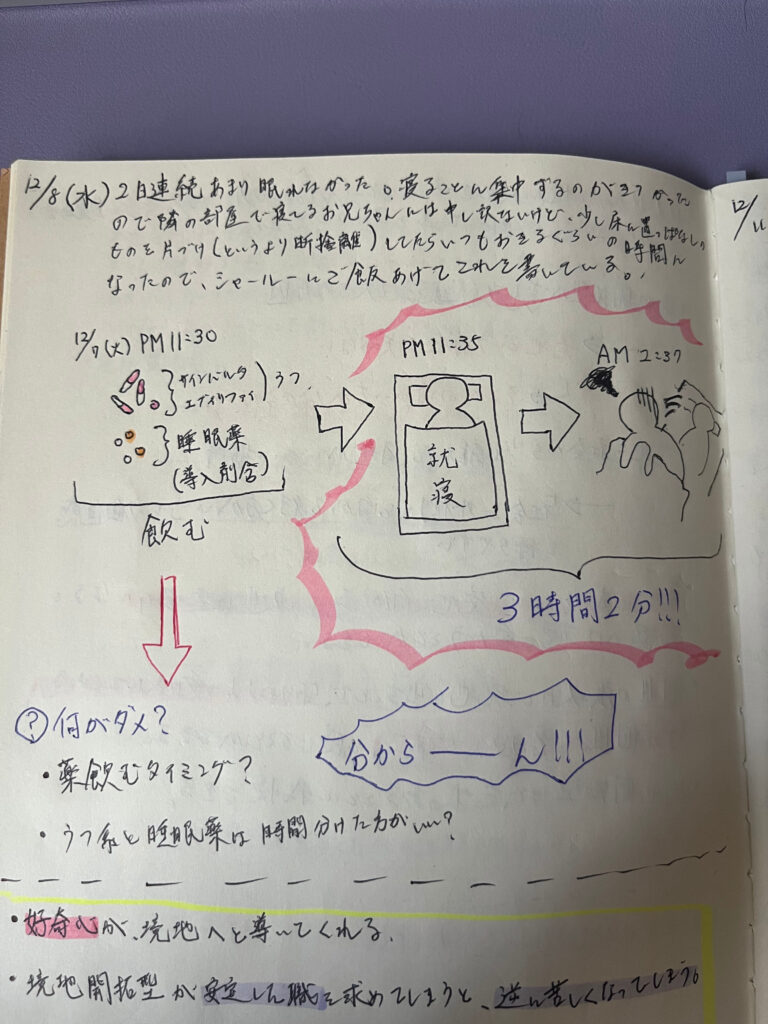 12/8(水) 2日連続あまり眠れなかった。寝ることに集中するのがきつかった
ので隣の部屋で寝てるお兄ちゃんには申し訳ないけど、少し床に置きっぱなしの
ものを片づけ(というより断捨離)してたらいつもおきるぐらいの時間に
なったので、シャールーにご飯あげてこれを書いている。
12/
11
12/7(火) PM11:30
サインバルタ
エビリファイ
うつ
睡眠薬
(導入剤含)
飲む
PM11:35
就
寝
AM 2:37
3時間2分!!!
? 何がダメ?
分から――ん!!!
・薬飲むタイミング?
・うつ系と睡眠薬は時間分けた方がいい?
・好奇心が、境地へと導いてくれる。
・境地開拓型が安定した職を求めてしまうと、逆に苦しくなってしまう。